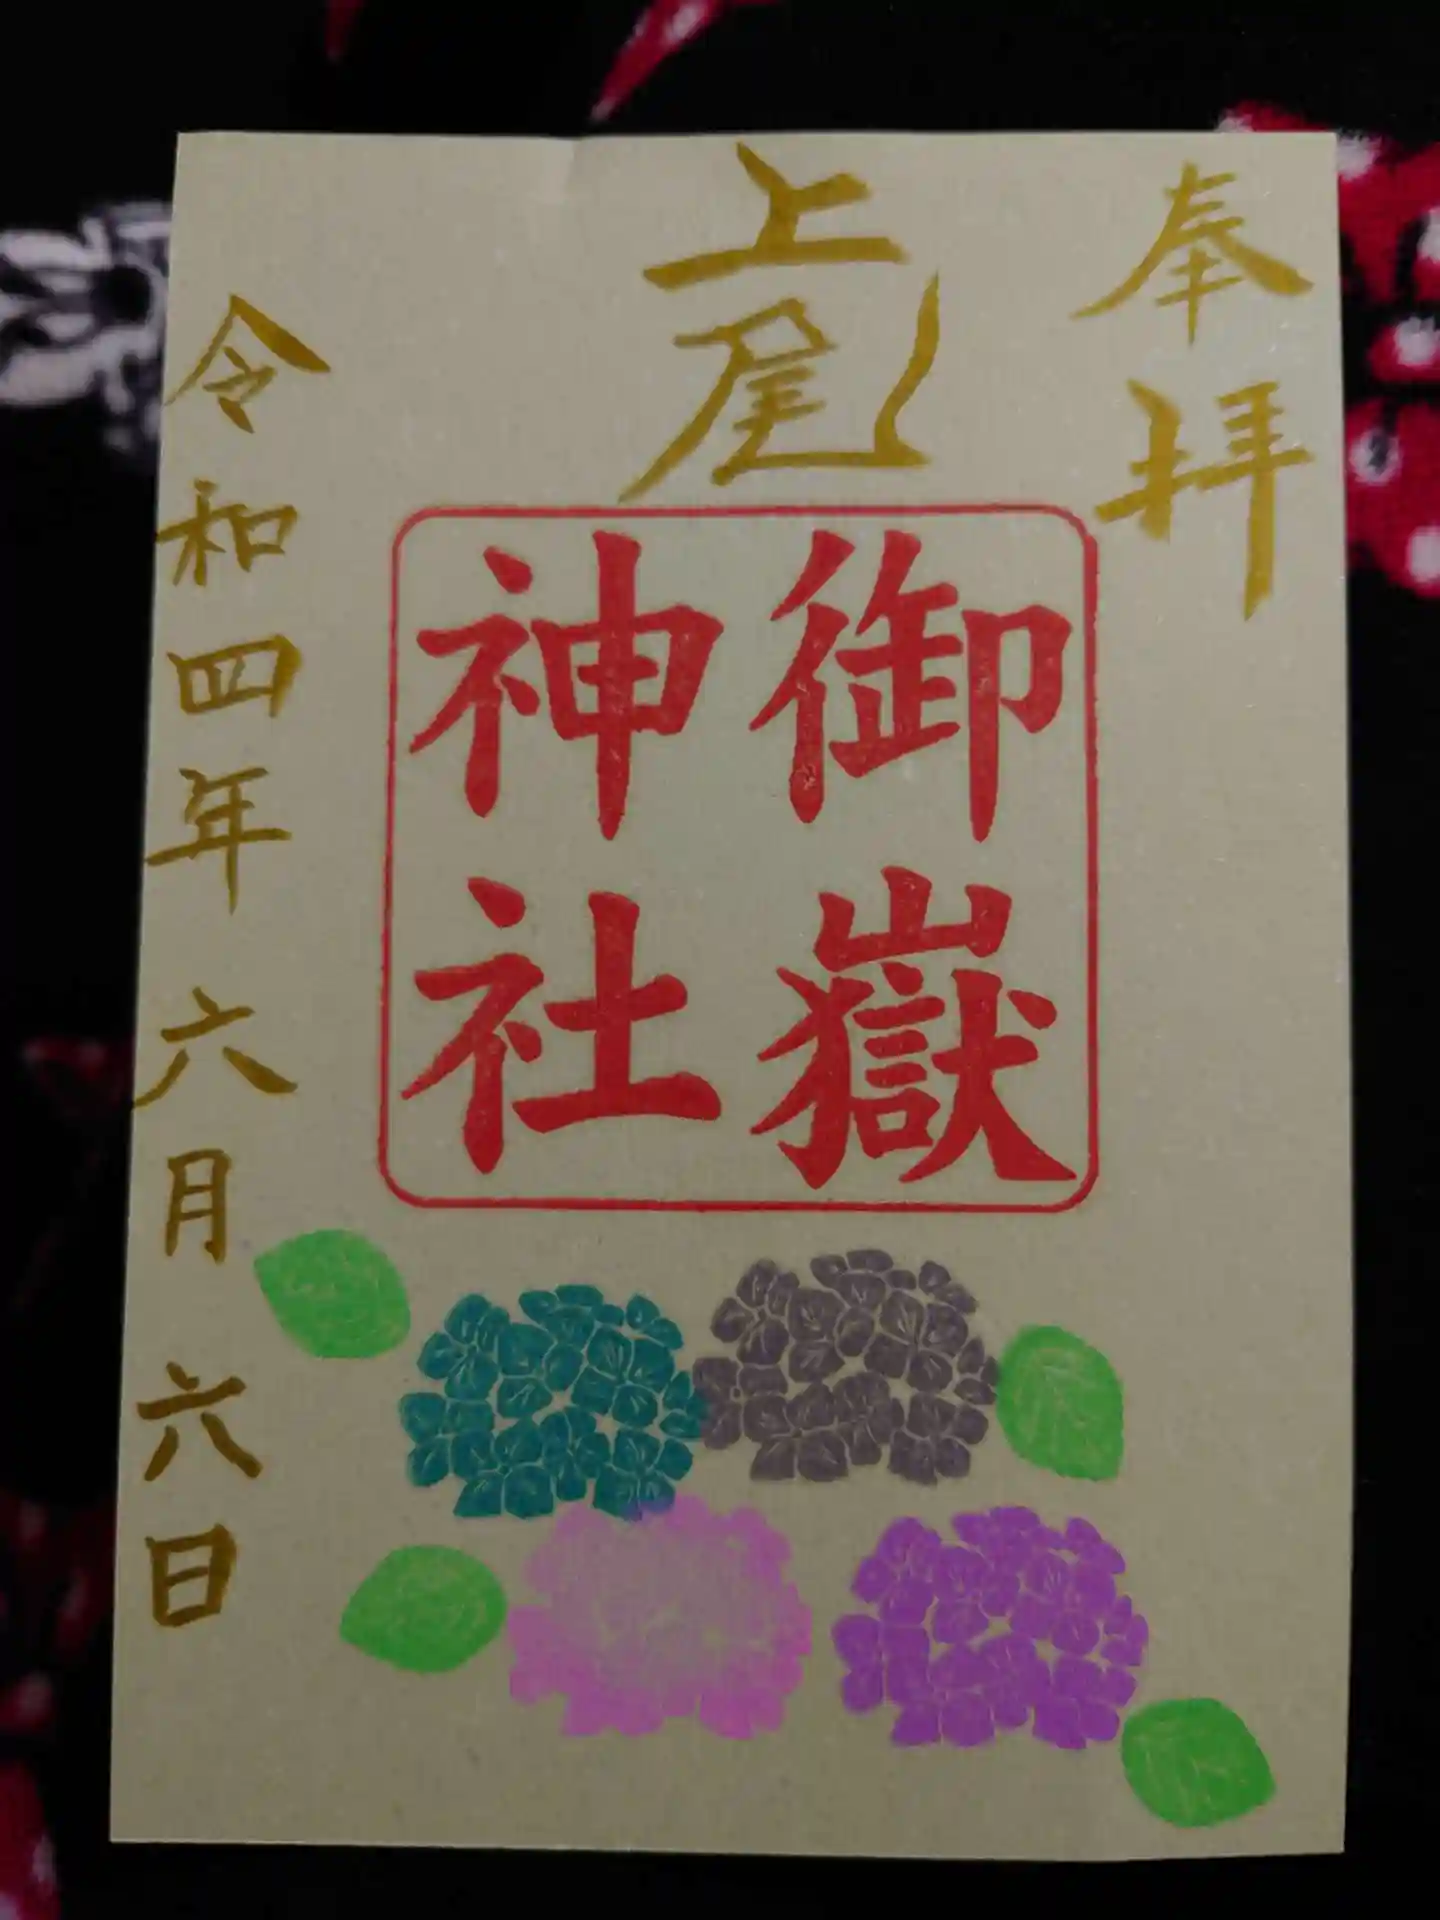 奉拝
上尾
御嶽
神社
令和四年六月六日